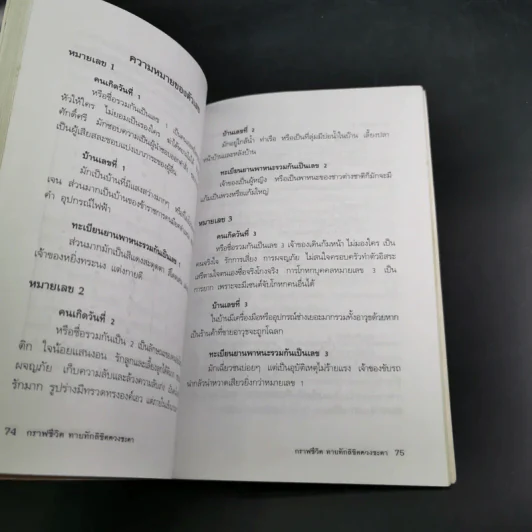 ความหมายของตัวเลข
หมายเลข 1
คนเกิดวันที่ 1
หรือชื่อรวมกันเป็นเลข 1
หัวให้ใคร ไม่ยอมเป็นรองใคร
ศักดิ์ศรี มักชอบความเป็นผู้นำ
เป็นผู้เสียสละชอบแบ่งเบาภาระของผู้อื่น
บ้านเลขที่ 1
มักเป็นบ้านที่มีแสงสว่างมากๆ
เจน ส่วนมากเป็นบ้านของข้าราชการ
ดำ อุปกรณ์ไฟฟ้า
ทะเบียนยานพาหนะรวมกันเป็นเลข 1
ส่วนมากมักเป็นสีแดงสะดุดตา
เจ้าของหยิ่งทระนง แต่งกายดี
หมายเลข 2
คนเกิดวันที่ 2
หรือชื่อรวมกันเป็น 2 เป็นลักษณะ
ติก ใจน้อยแสนงอน รักลูกและเลี้ยงลูกได้ดีมาก
ผจญภัย เก็บความลับและล้วงความลับเก่ง
รักมาก รูปร่างมีทรวดทรงองค์เอว
74 กราฟชีวิต ทายทักลิขิตดวงชะตา
บ้านเลขที่ 2
มักอยู่ใกล้น้ำ ท่าเรือ หรือเป็นที่ลุ่มมีบ่อน้ำในบ้าน เลี้ยงปลา
หน้าบ้านและหลังบ้าน
ทะเบียนยานพาหนะรวมกันเป็นเลข 2
เจ้าของเป็นผู้หญิง หรือเป็นพาหนะของชาวต่างชาติก็มักจะมี
แก้มเป็นพวงหรือแก้มใหญ่
หมายเลข 3
คนเกิดวันที่ 3
หรือชื่อรวมกันเป็นเลข 3 เจ้าของเดินก้มหน้า ไม่มองใคร เป็น
คนจริงใจ รักการเสี่ยง การผจญภัย ไม่สนใจครอบครัวทำตัวอิสระ
เสรีตามใจตนเองซื่อจริงโกงจริง การโกหกบุคคลหมายเลข 3 เป็น
การยาก เพราะจะมีเซนต์จับโกหกคนอื่นได้
บ้านเลขที่ 3
ในบ้านมีเครื่องมือหรืออุปกรณ์ช่างเยอะมากรวมทั้งอาวุธด้วยหาก
เป็นร้านค้าที่ขายอาวุธจะถูกโฉลก
ทะเบียนยานพาหนะรวมกันเป็นเลข 3
มักเฉี่ยวชนบ่อยๆ แต่เป็นอุบัติเหตุไม่ร้ายแรง เจ้าของขับรถ
น่ากลัวน่าหวาดเสียวยิ่งกว่าหมายเลข 1
กราฟชีวิต ทายทักลิขิตดวงชะตา 75